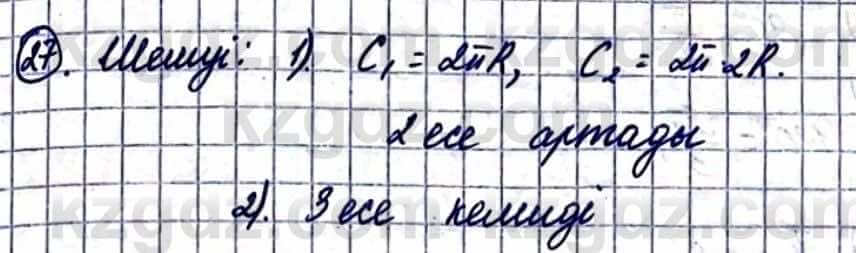 27. Шешуі: 1). C₁ = 2πR, C₂ = 2π·2R.
2 есе артады
2). 3 есе кемиді
kzgdz.com kzgdz.com
kzgdz.com
kzgdz.com kzgdz.com